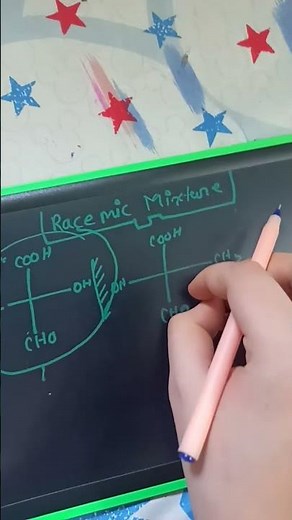 Racemic Mixture
COOH
COOH
OH
OH
CH
CHO
CHO